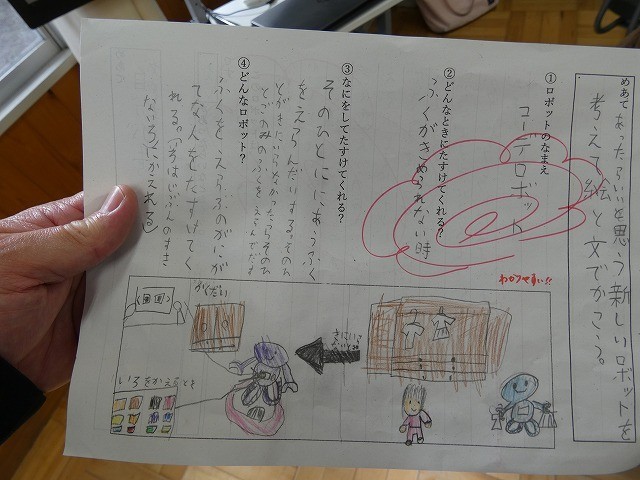 めあて あったらいいと思う新しいロボットを
考えて絵と文でかこう。
①ロボットのなまえ
コーデロボット
②どんなときにたすけてくれる?
ふくがきめられない時
③なにをしてたすけてくれる?
そのひとににあうふく
をえらんだりする。そのひ
とがきにいらなかったらそのひ
とごのみのふくをえらんでだす
④どんなロボット?
ふくをえらぶのがにが
てな人をたすけてく
れる。(いろはじぶんのすき
ないろにかえれて)
わかりやすい!!
かくだい
いろをかえるとき